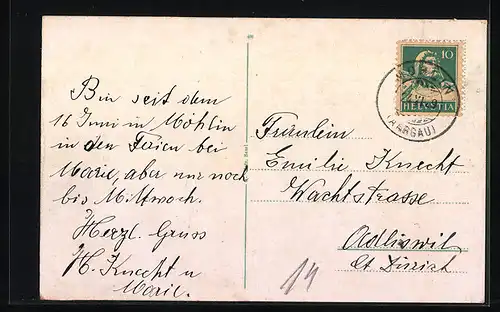 Bin seit dem
16 Juni in Möhlin
in den Faien bei
Marie, aber nur noch
bis Mittwoch.
Herzl. Gruss
H. Knecht u
Marie.
10
HELVETIA
(AARGAU)
Fräulein
Emilie Knecht
Wachtstrasse
Adliswil
Ct Zürich
14